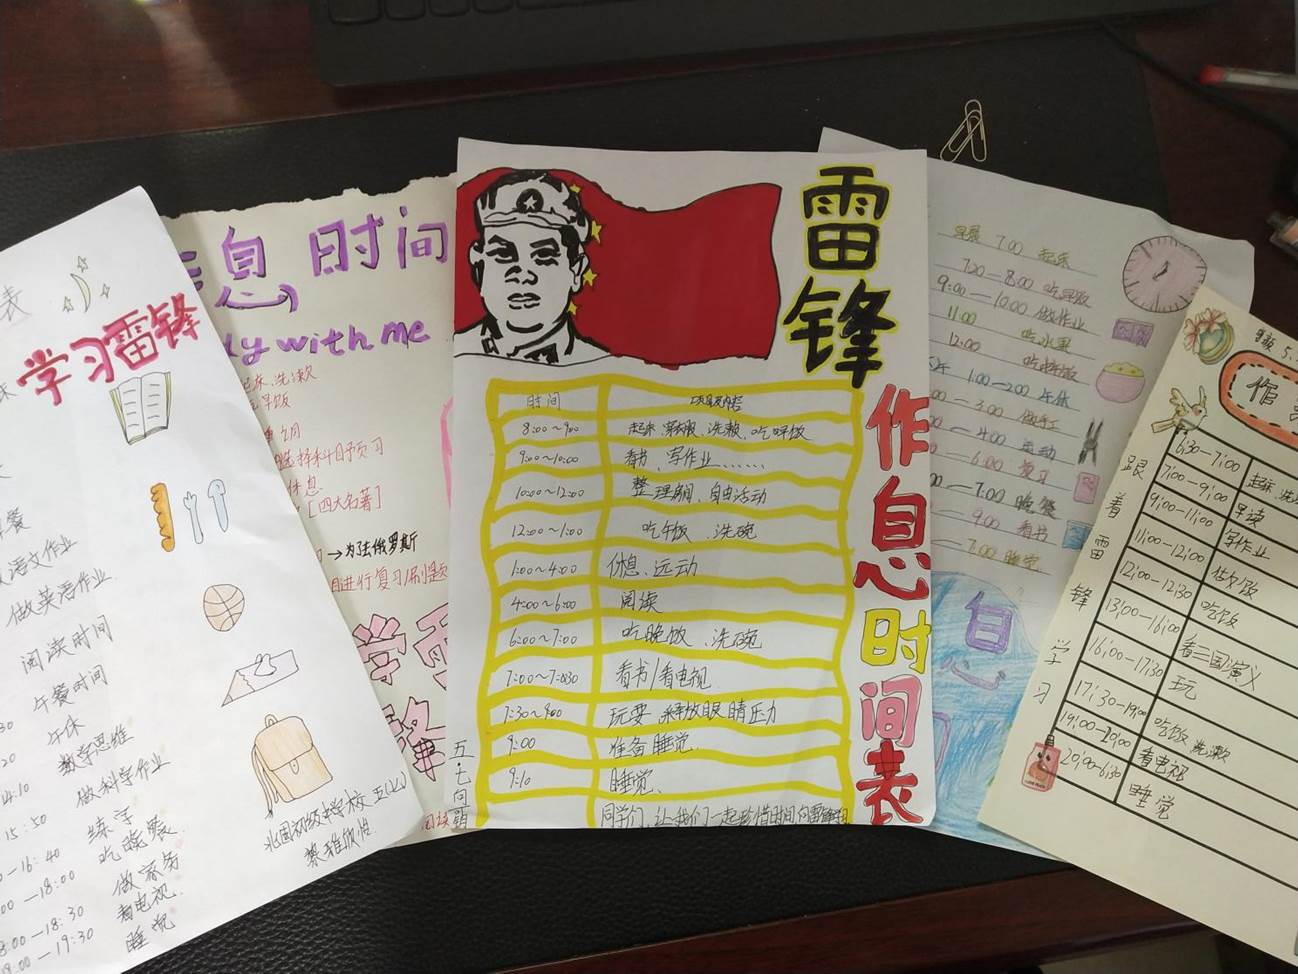 表
学习雷锋
语文作业
做英语作业
阅读时间
午餐时间
午休
数学思维
14:10 做科学作业
15:50 练字
16:40 吃晚飯
18:00 做家务
18:30 看电视
18:00—19:30 睡觉
北国初级中学校 五
息时间
with me
起床、洗漱
早饭
选择科目预习
休息
[四大名著]
→为法俄罗斯
进行复习/刷题
学雷
锋
雷锋
作息时间表
时间
8:00~9:00 起床、穿衣服、洗漱、吃早饭
9:00~10:00 看书、写作业……
10:00~12:00 整理房间、自由活动
12:00~1:00 吃午饭、洗碗
1:00~4:00 休息、运动
4:00~6:00 阅读
6:00~7:00 吃晚饭、洗碗
7:00~7:30 看书/看电视
7:30~9:00 玩耍 释放眼睛压力
9:00 准备睡觉
9:10 睡觉、
同学们,让我们一起珍惜时间向雷锋
五·七
早晨 7:00 起床
7:20—8:00 吃早饭
9:00—10:00 做作业
11:00 吃水果
12:00 吃中饭
1:00—2:00 午休
3:00 做手工
4:00 运动
6:00 复习
7:00 晚餐
9:00 看书
7:00 睡觉
息
作
跟着雷锋学习
6:30—7:00 起床、洗
7:00—9:00 早读
9:00—11:00 写作业
11:00—12:00 做饭
12:00—12:30 吃饭
13:00—16:00 看三国演义
16:00—17:30 玩
17:30—19:00 吃饭 洗漱
19:00—20:00 看电视
20:00—6:30 睡觉